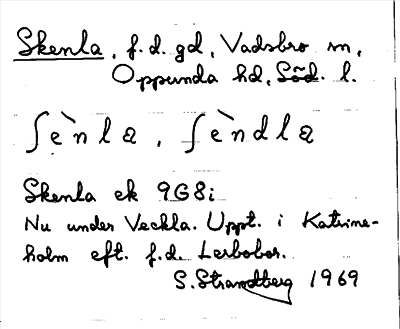 Skenla, f.d. gd, Vadsbro sn,
Oppunda hd, Söd. l.
ʃènla, ʃèndla
Skenla ek 9G8i
Nu under Veckla. Uppt. i Katrine-
holm eft. f.d. Lerbobor.
S. Strandberg 1969